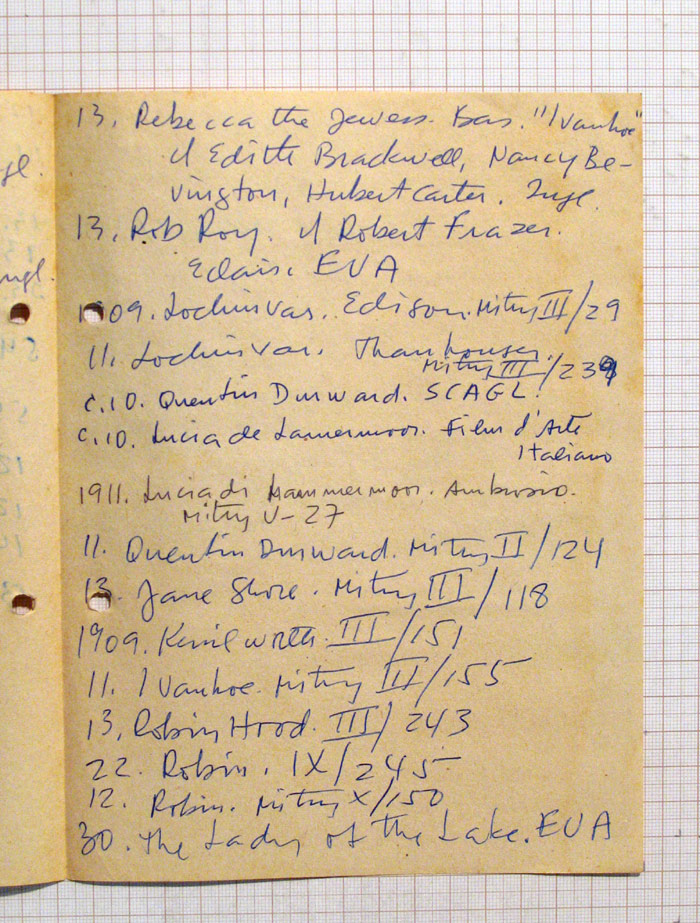 13. Rebecca the Jewess. Bas. "Ivanhoe"
cf Edith Bracewell, Nancy Be-
vington, Hubert Carter. Ingl.
13. Rob Roy. cf Robert Frazer.
Eclair. EUA
1909. Lochinvar. Edison. Mitry III/29
11. Lochinvar. Thanhouser.
Mitry III/239
c.10. Quentin Durward. SCAGL.
c.10. Lucia de Lamermoor. Film d'Arte
Italiano
1911. Lucia di Lammermoor. Ambrosio.
Mitry V-27
11. Quentin Durward. Mitry II/124
13. Jane Shore. Mitry III/118
1909. Kenilworth. III/151
11. Ivanhoe. Mitry III/155
13. Robin Hood. III/243
22. Robin. IX/245
12. Robin. Mitry X/150
30. The Lady of the Lake. EUA